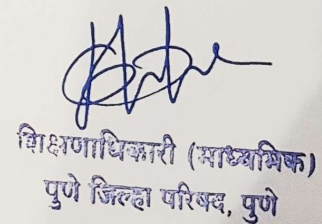 शिक्षणाधिकारी (माध्यमिक)
पुणे जिल्हा परिषद, पुणे